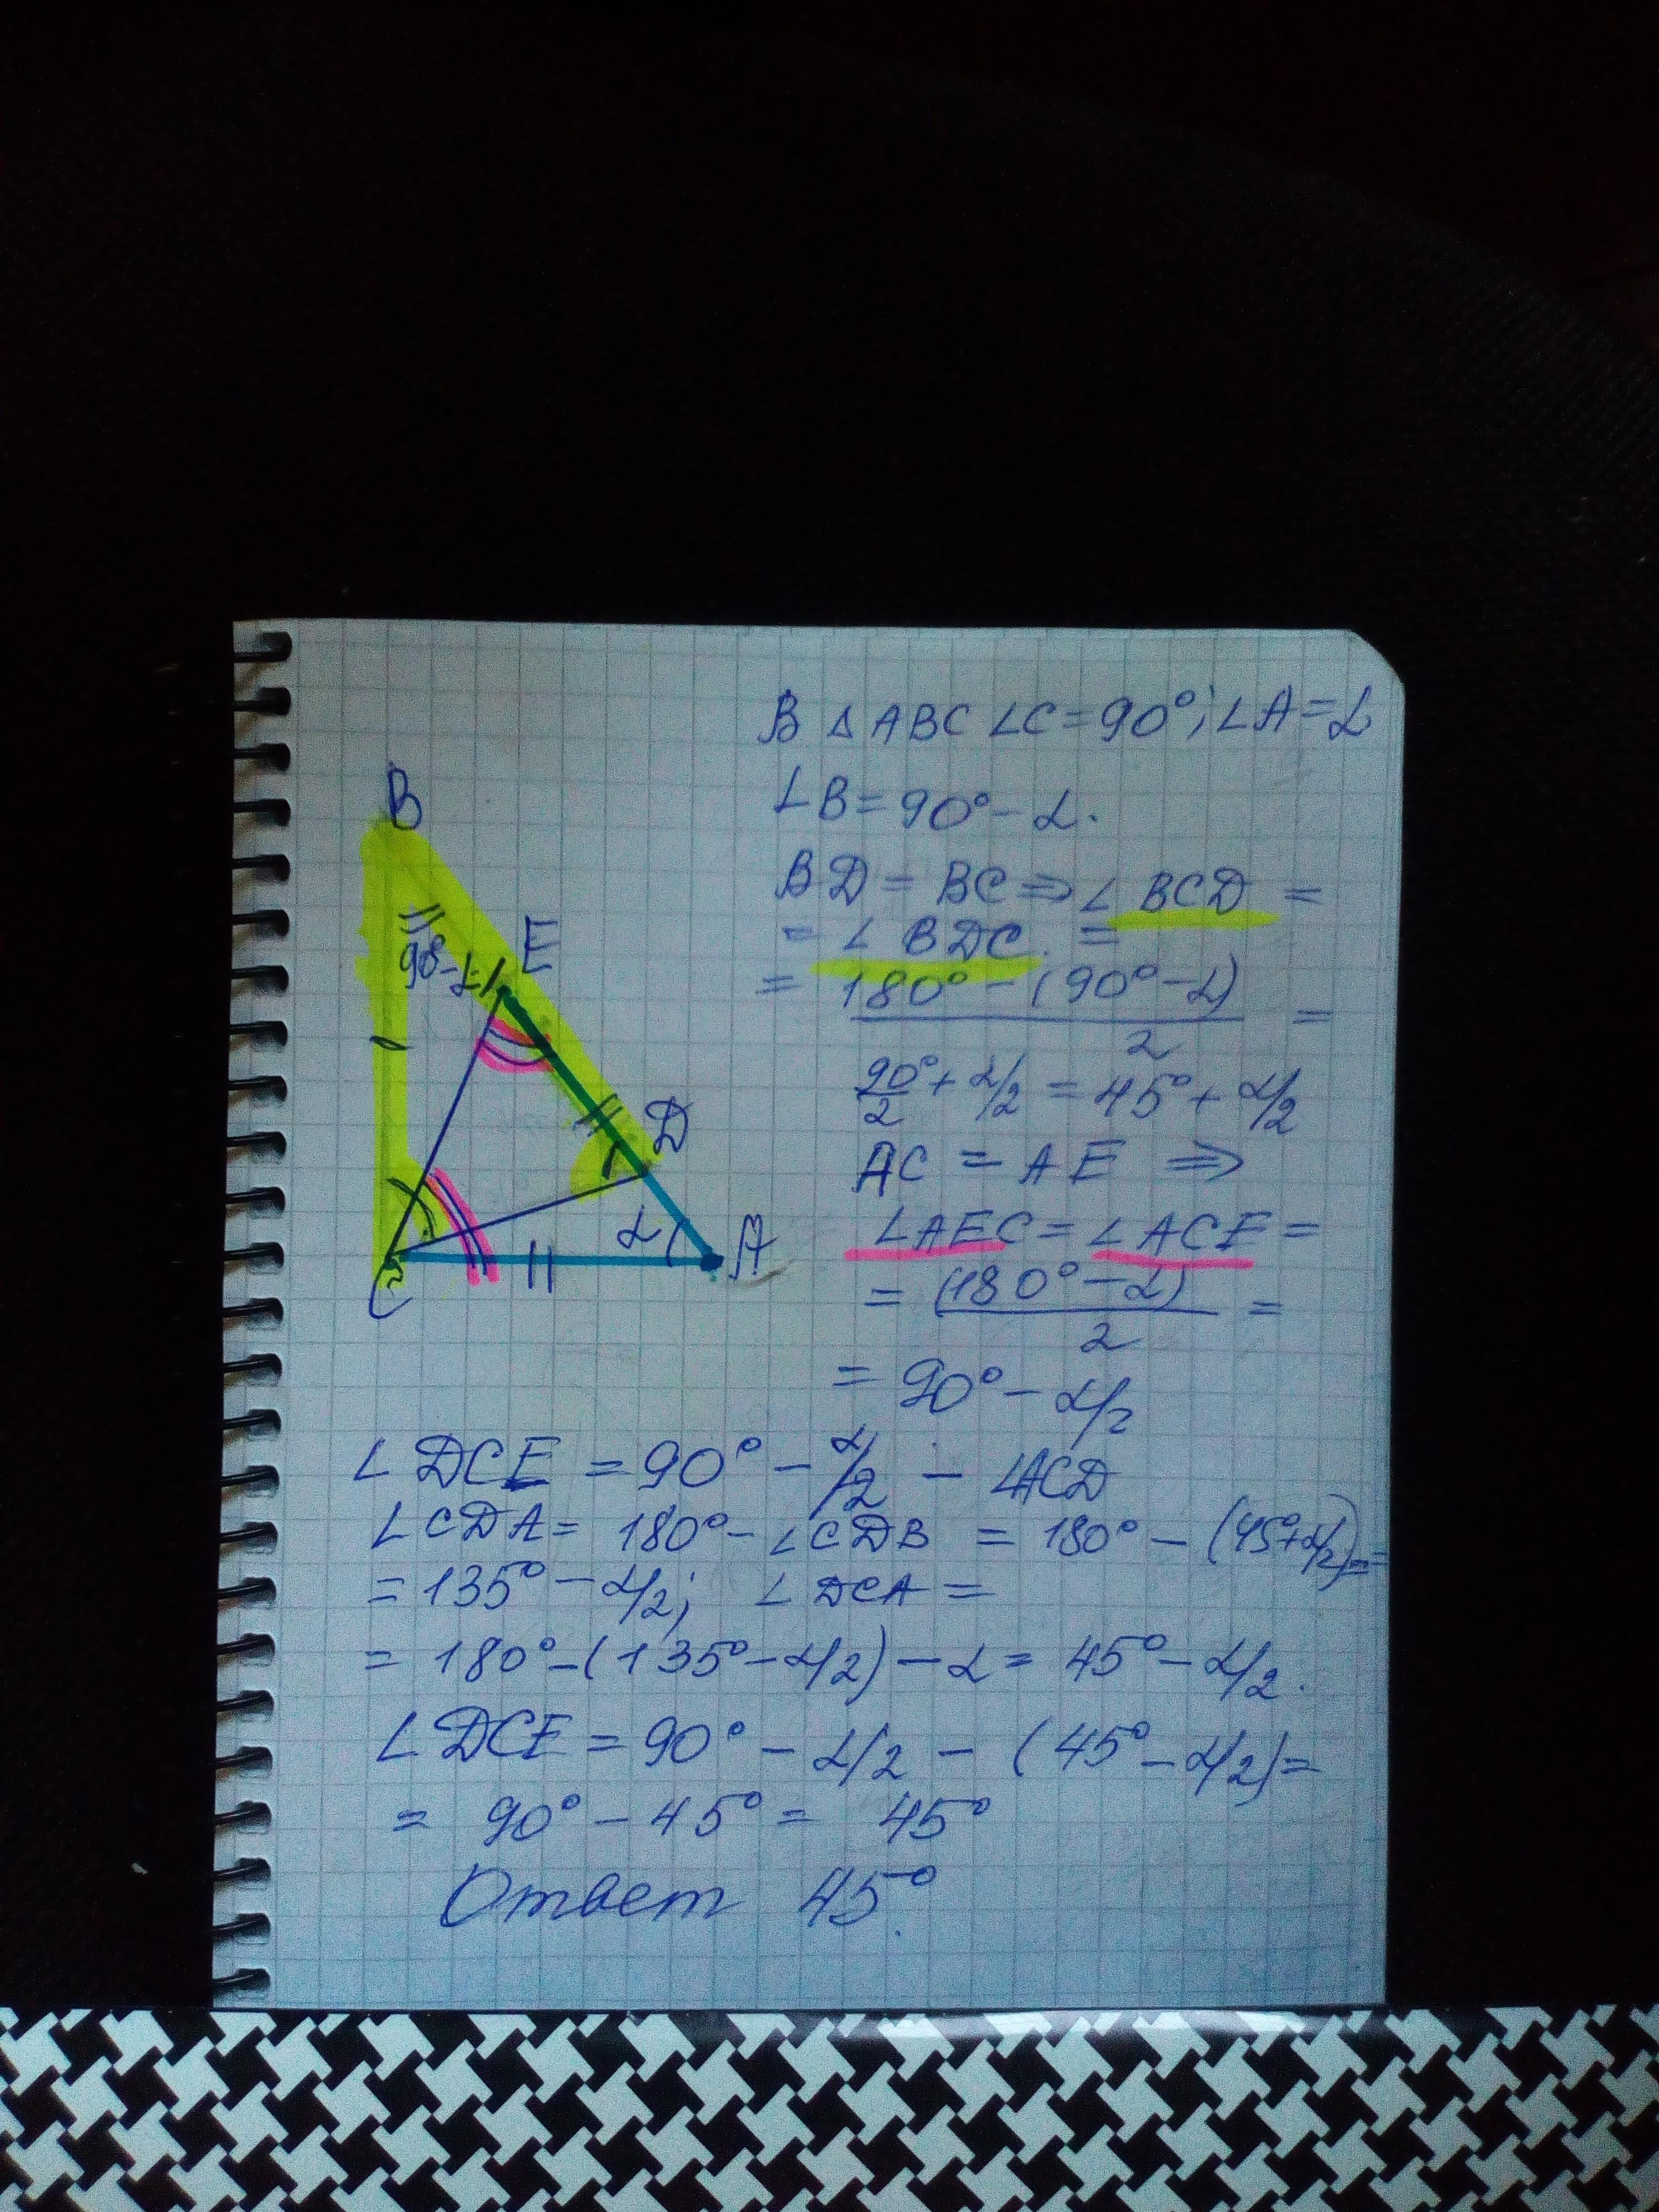 В △ABC ∠C=90°; ∠A=α
∠B=90°-α.
BD = BC ⇒ ∠BCD =
= ∠BDC. =
= (180° - (90° - α))/2 =
90°/2 + α/2 = 45° + α/2
AC = AE ⇒
∠AEC = ∠ACE =
= (180° - α)/2 =
= 90° - α/2
B
E
90°-α
D
α
A
C
∠DCE = 90° - α/2 - ∠ACD
∠CDA = 180° - ∠CDB = 180° - (45°+α/2) =
= 135° - α/2; ∠DCA =
= 180° - (135° - α/2) - α = 45° - α/2.
∠DCE = 90° - α/2 - (45° - α/2) =
= 90° - 45° = 45°
Ответ 45°.